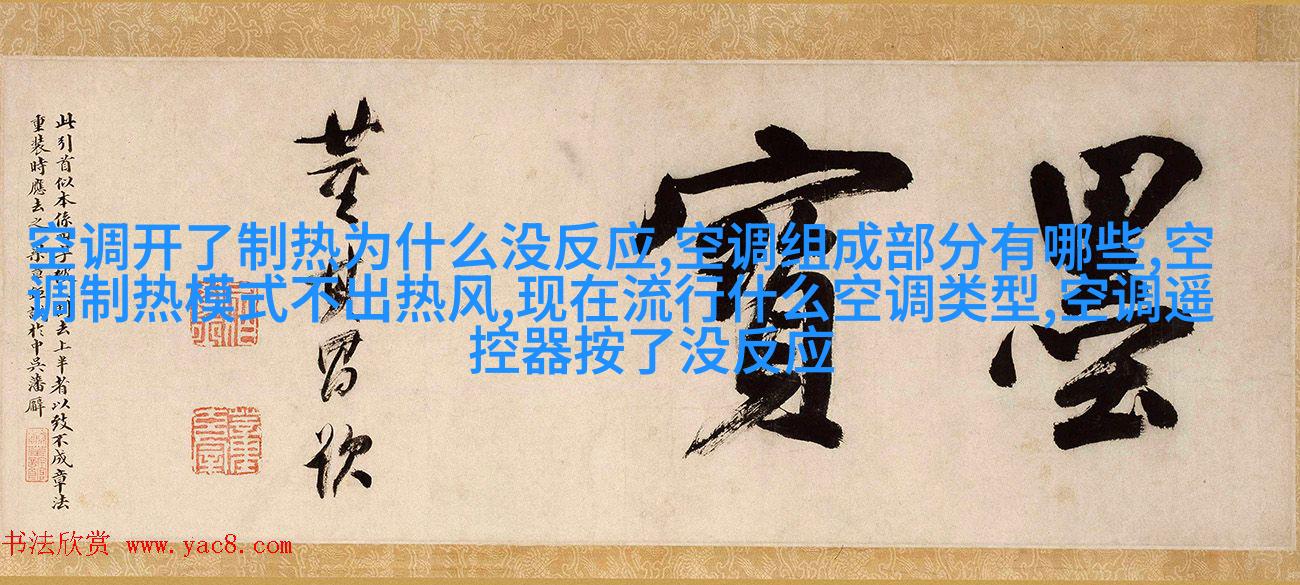 墨寶
董其昌跋
此引首似本係
去上半者以致不成章法
重裝時應去之
於中吳潘
空调开了制热为什么没反应,空调组成部分有哪些,空
调制热模式不出热风,现在流行什么空调类型,空调遥
控器按了没反应
书法欣赏 www.yac8.com